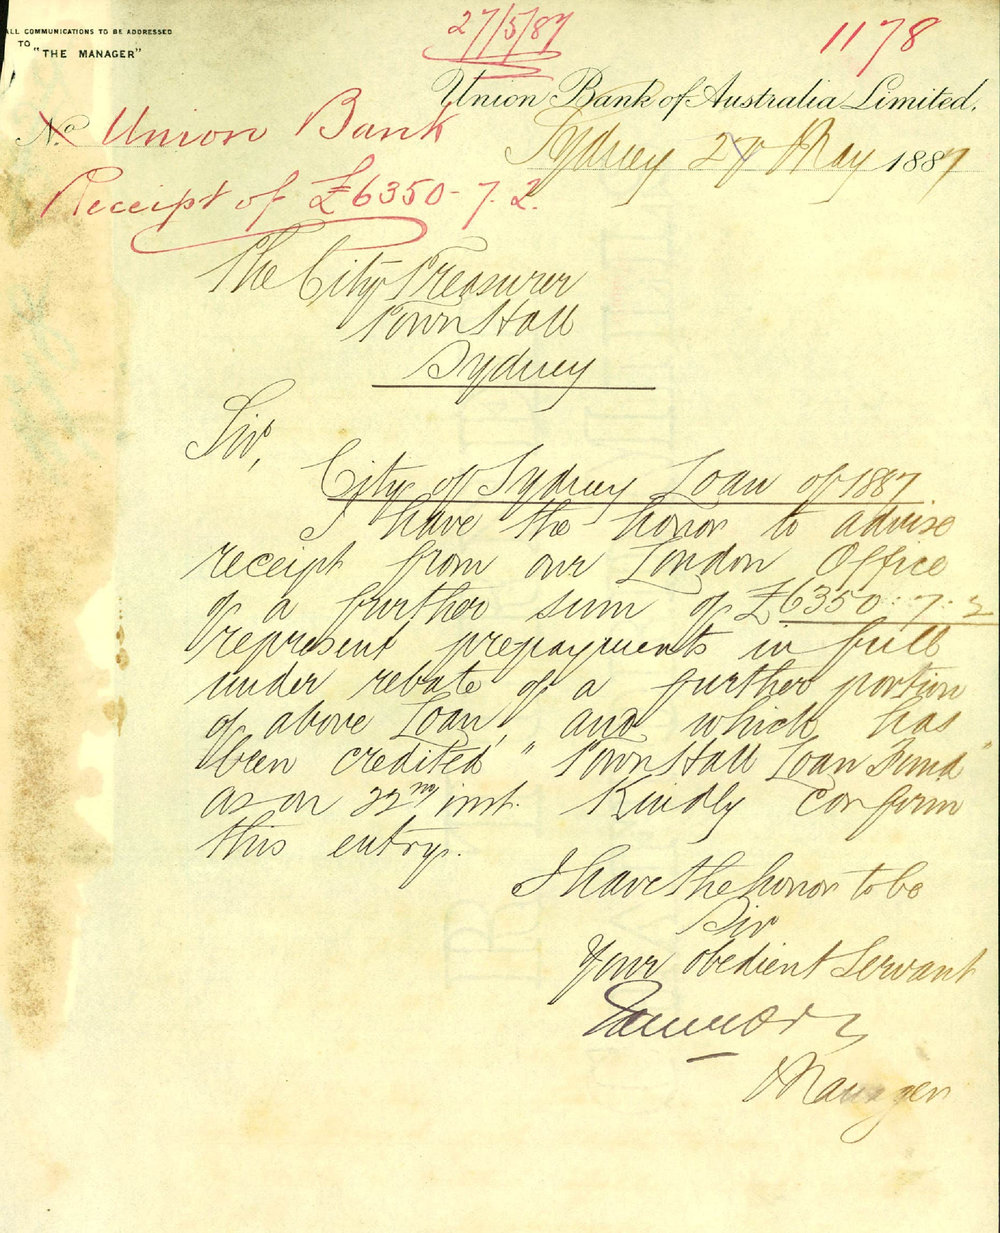 ALL COMMUNICATIONS TO BE ADDRESSED
TO
"THE MANAGER"
27/5/87
1178
Union Bank of Australia Limited.
No. Union Bank
Sydney 27 May 1887
Receipt of £6350-7.2.
The City Treasurer
Town Hall
Sydney
Sir,
City of Sydney Loan of 1887.
I have the honor to advise
receipt from our London Office
of a further sum of £6350.7.2
represent prepayments in full
under rebate of a further portion
of above Loan, and which has
been credited "Town Hall Loan Fund"
as on 22nd inst. Kindly confirm
this entry.
I have the honor to be
Sir
Your obedient Servant
Manager